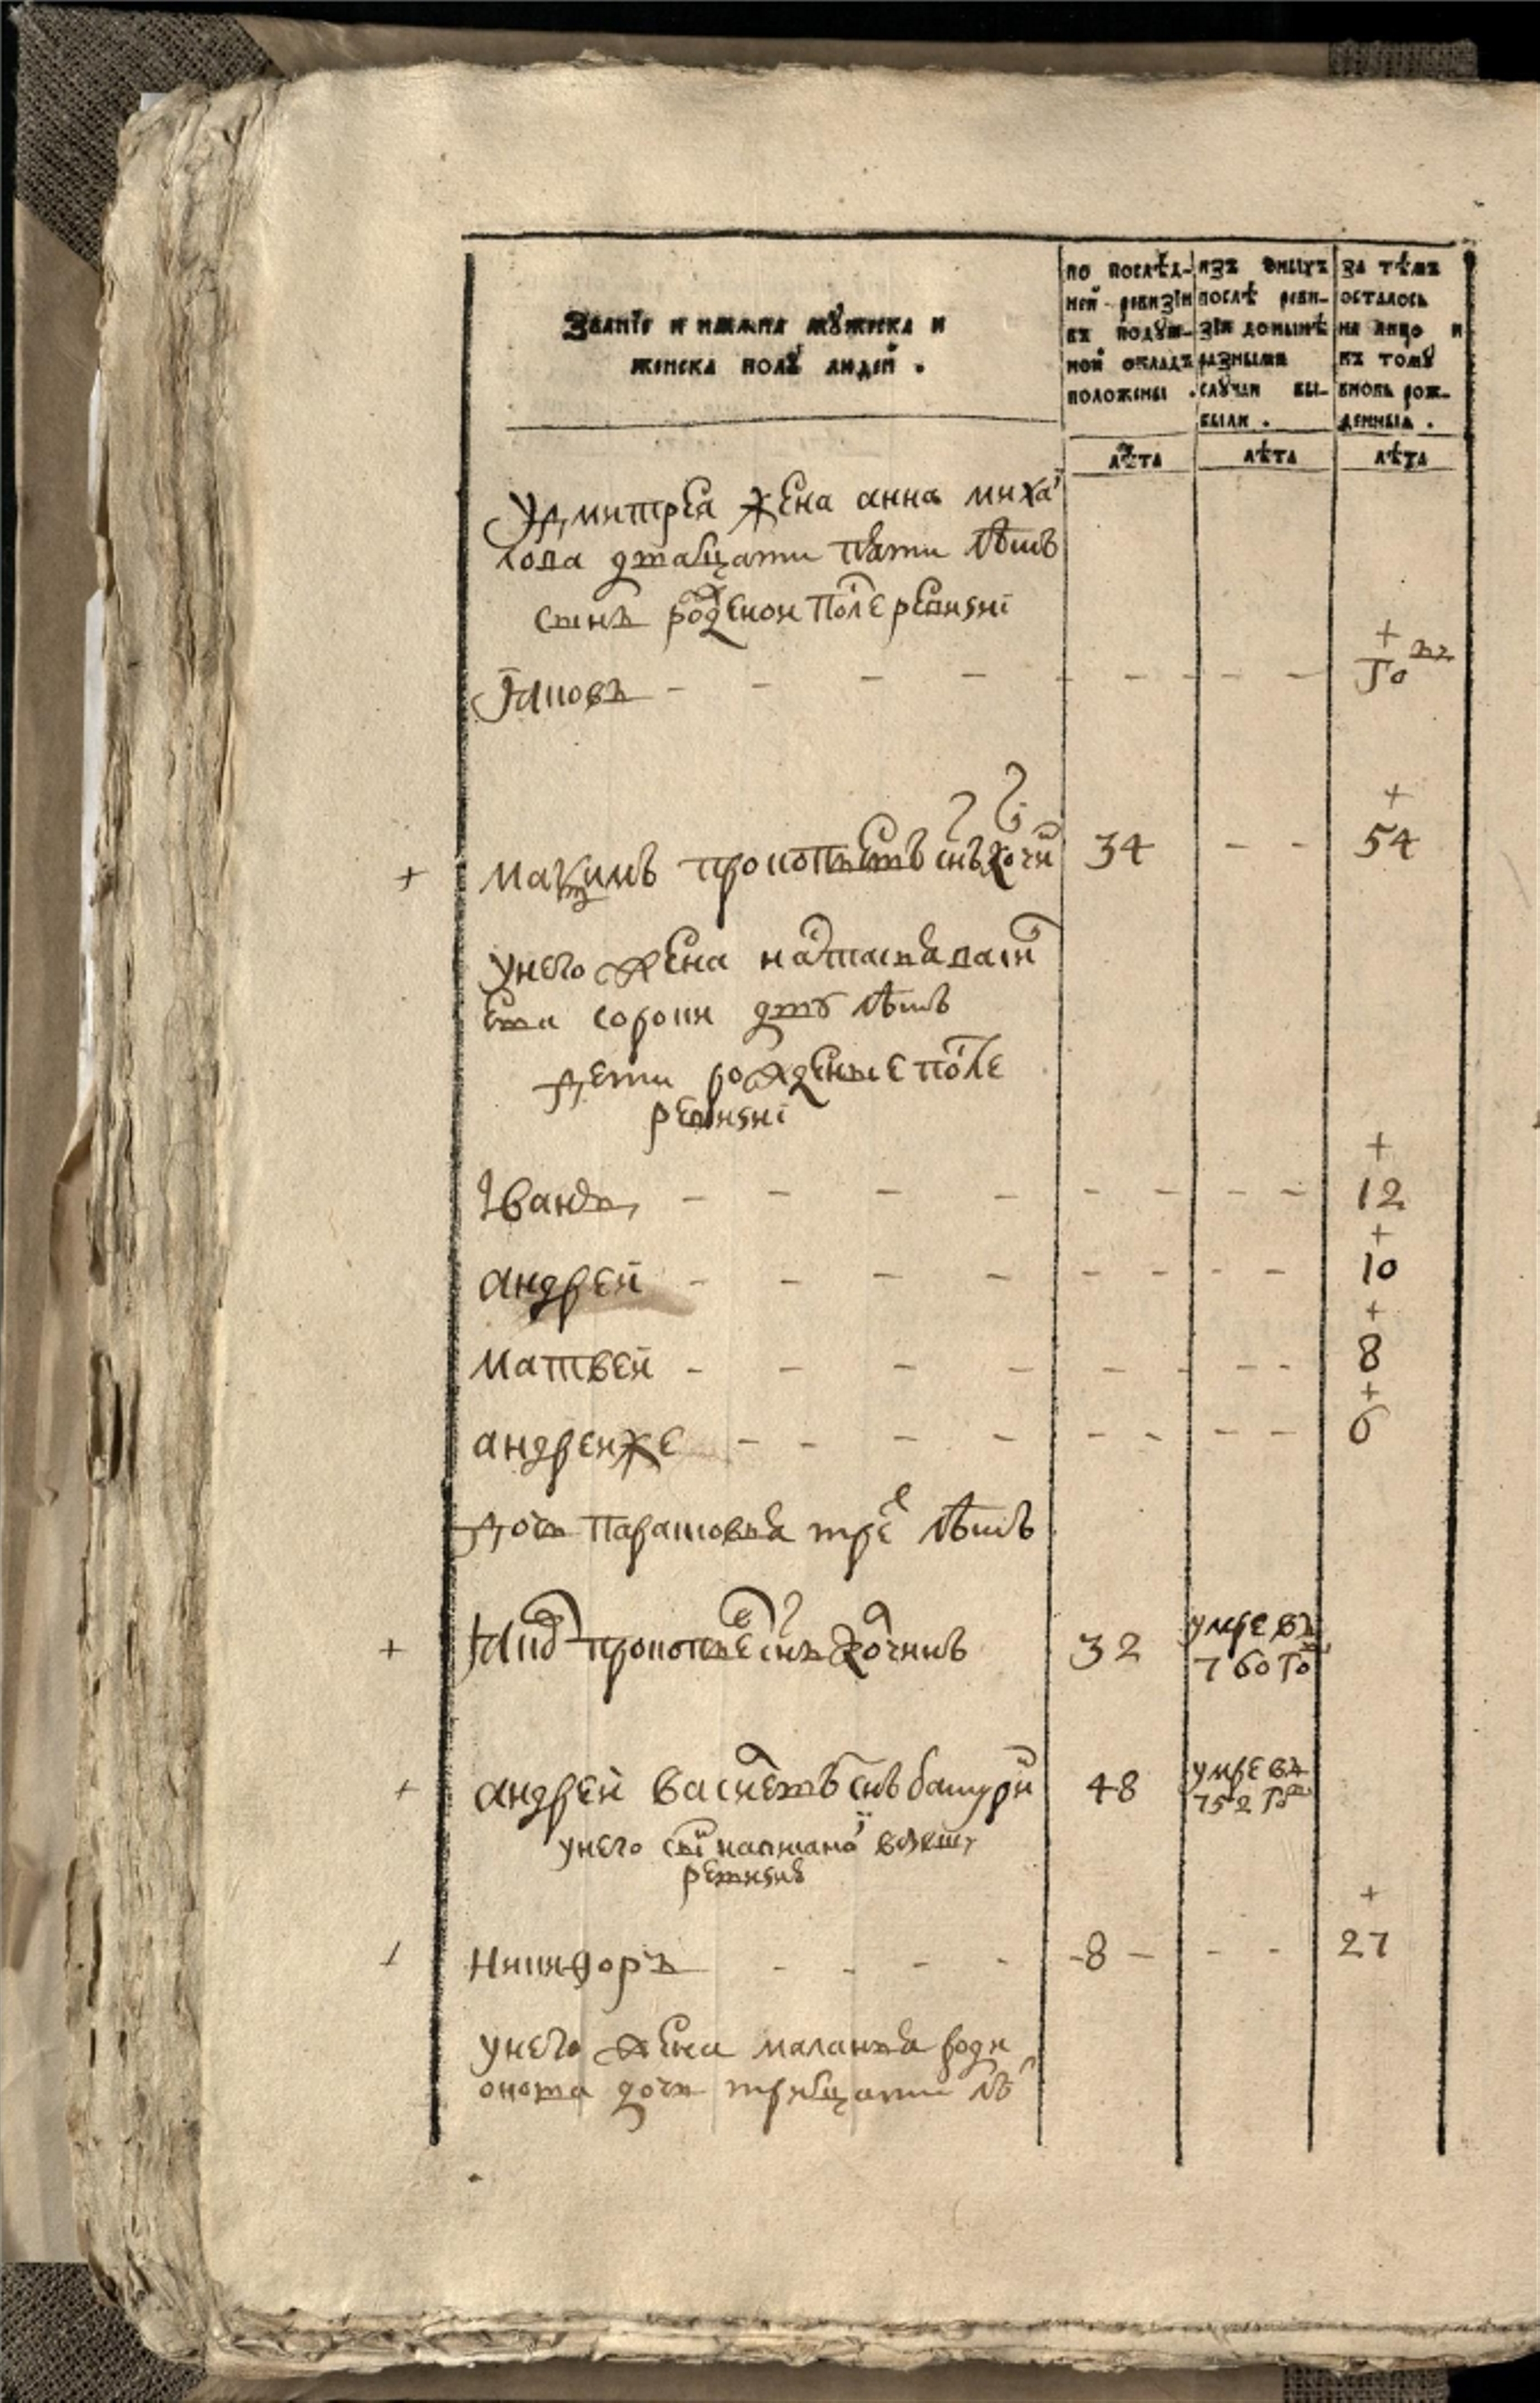 Званїе и имѧна мꙋжеска и
женска полꙋ людей .
по послѣд-
ней ревизїи
въ подꙋш-
ной окладъ
положены .
изъ оныхъ
послѣ реви-
зїи донынѣ
разными
случаи вы-
были .
за тѣмъ
осталось
на лицо и
къ томꙋ
вновь рож-
денныѧ .
лѣта
лѣта
лѣта
У дмитрея жена анна миха
лова дватцати пяти лѣтъ
сынъ рожденои после ревизиї
Яковъ - - - - - - - - го
+
+ маѯимъ прокопьевъ снъ кочн 34 - - 54
+
у него жена настасья васи
ева сорокн двѣ лѣтъ
дети рожденые после
ревизиї
+
Iванъ - - - - - - - - 12
+
андрей - - - - - - - - 10
+
матвей - - - - - - - - 8
+
андреи же - - - - - - - - 6
дочь парасковья трех лѣтъ
+ Яков прокопьев снъ кочнивъ 32 умре въ
760 го
+ андрей васильевъ снъ батурин 48 умре въ
752 го
у него снъ написаной
ревизиѣ
+
Никифоръ - - - - -8- - - 27
у него жена маланья роди
онова дочь тритцати лѣ